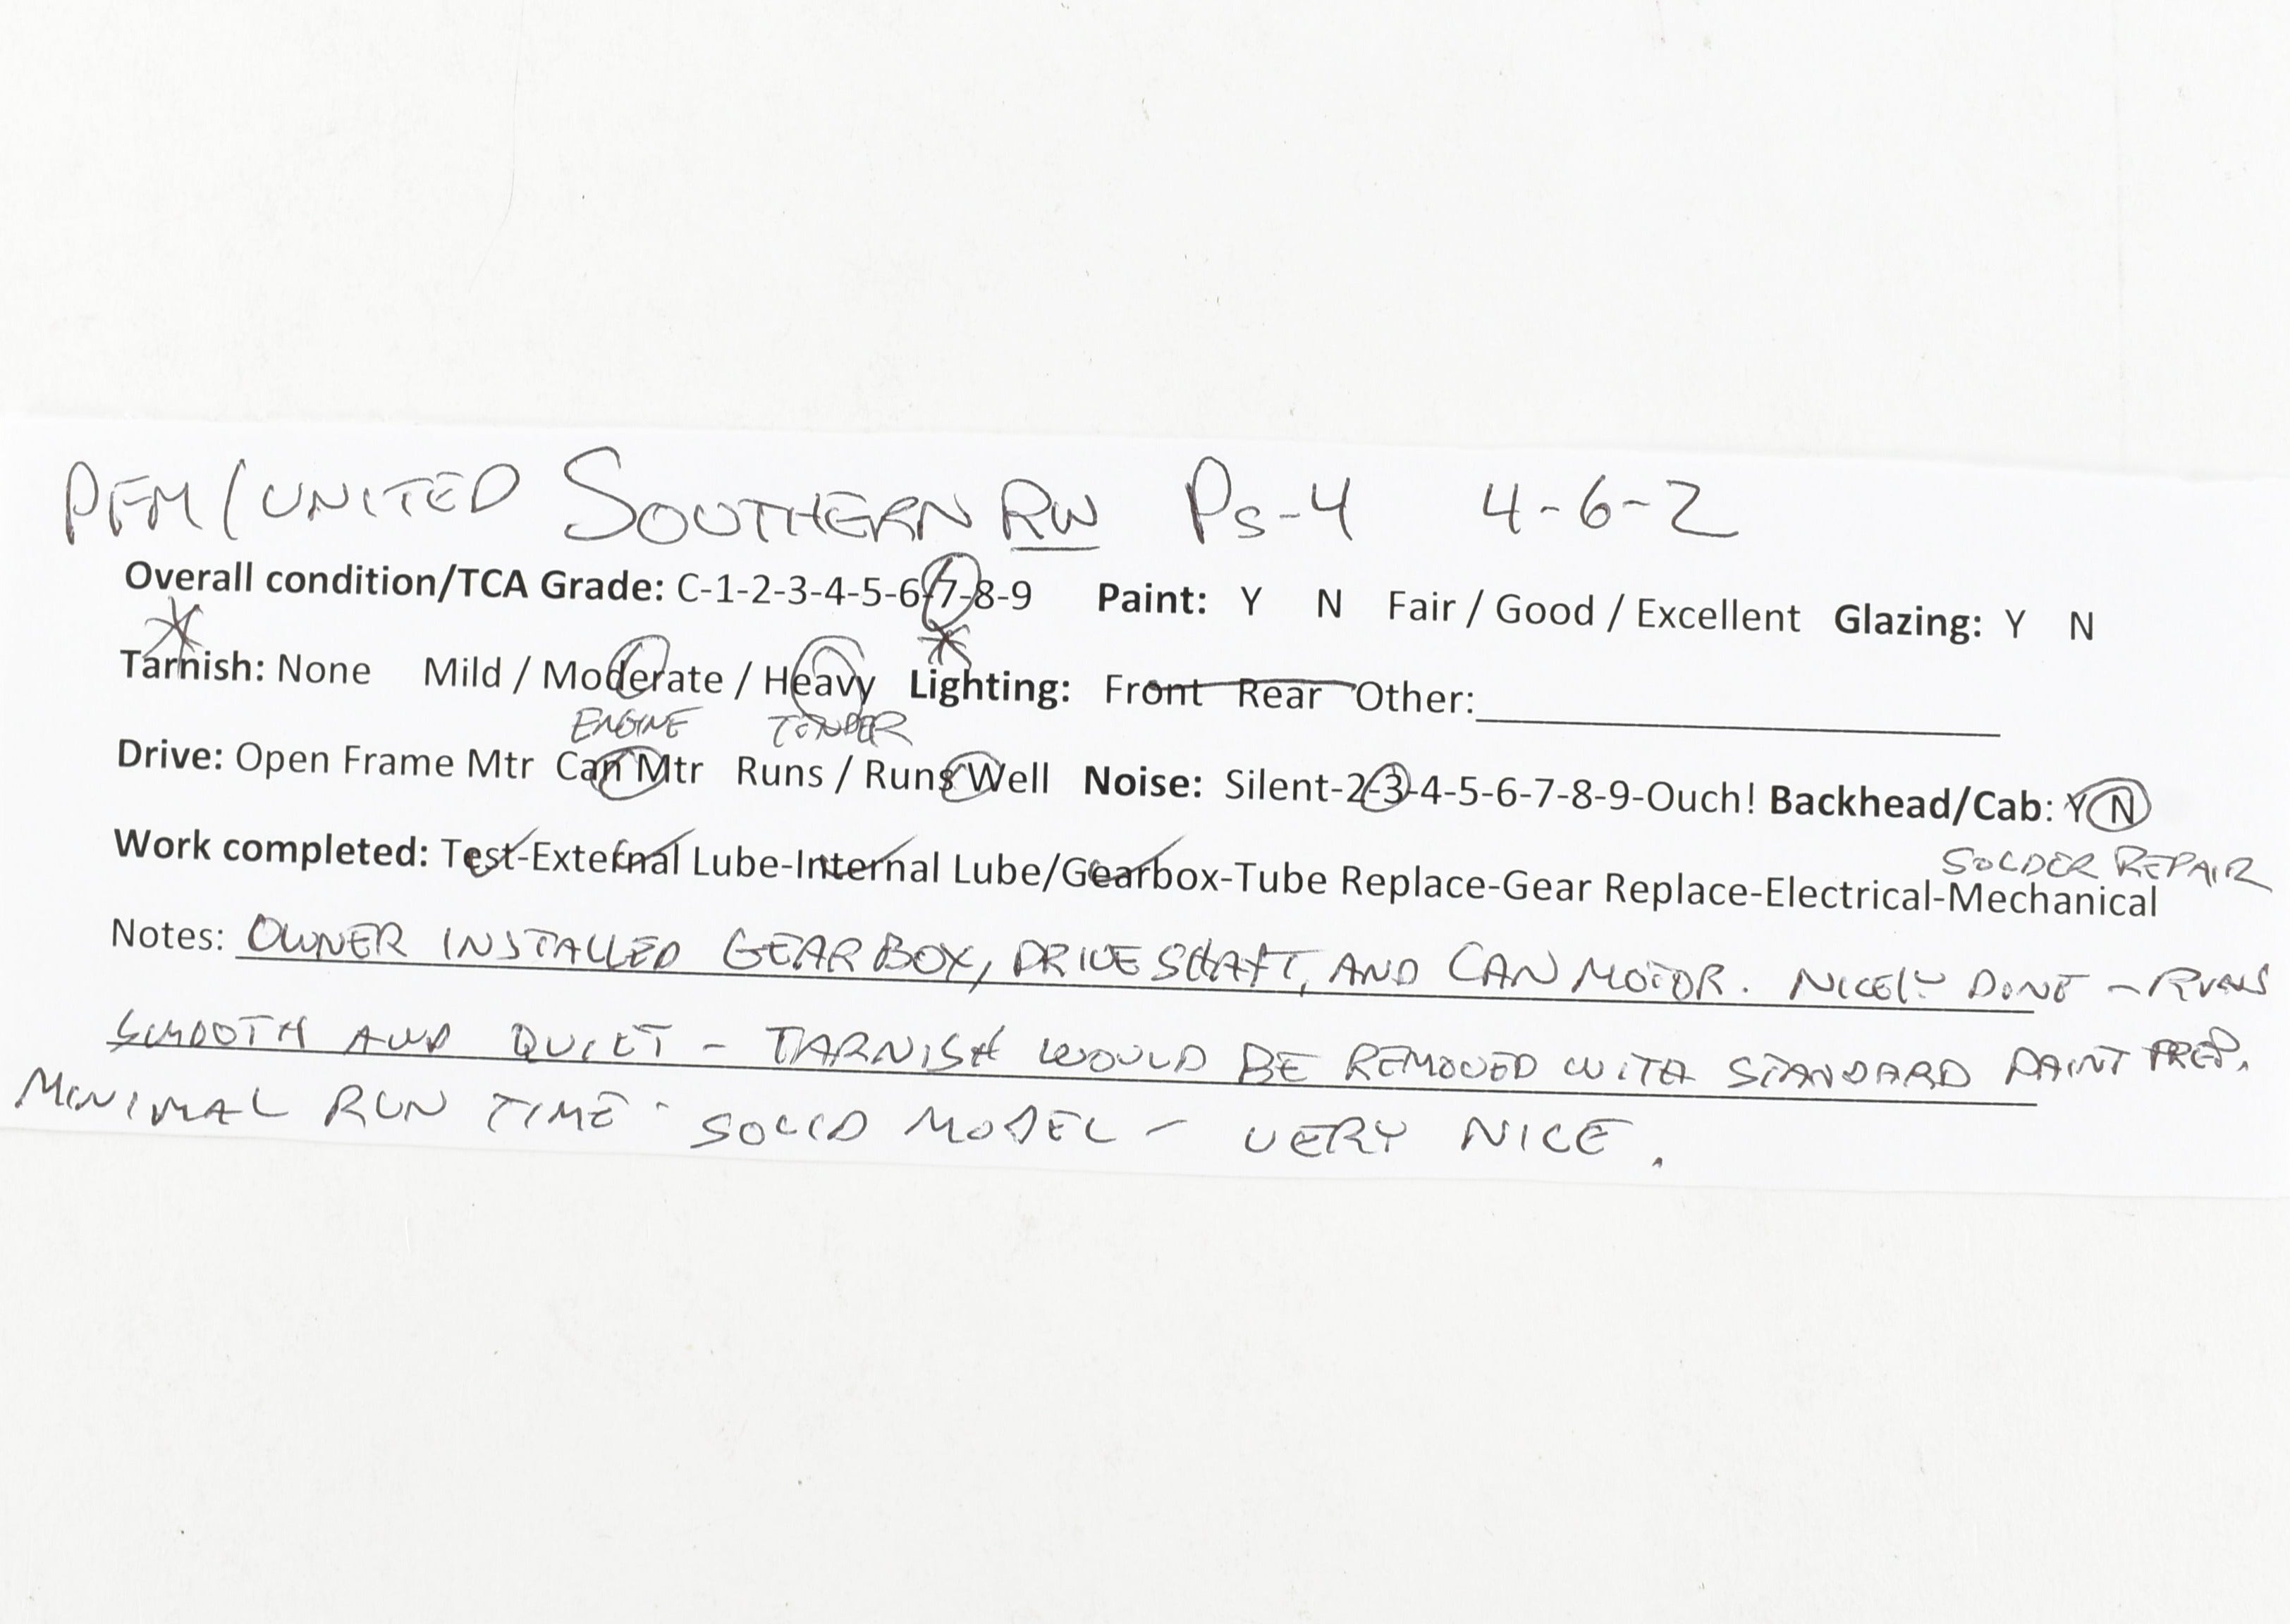 PFM/UNITED SOUTHERN RW Ps-4 4-6-2
Overall condition/TCA Grade: C-1-2-3-4-5-6-7-8-9 Paint: Y N Fair / Good / Excellent Glazing: Y N
Tarnish: None Mild / Moderate / Heavy Lighting: Front Rear Other:
ENGINE TENDER
Drive: Open Frame Mtr Can Mtr Runs / Runs Well Noise: Silent-2-3-4-5-6-7-8-9-Ouch! Backhead/Cab: Y N
SOLDER REPAIR
Work completed: Test-External Lube-Internal Lube/Gearbox-Tube Replace-Gear Replace-Electrical-Mechanical
Notes: OWNER INSTALLED GEARBOX, DRIVESHAFT, AND CAN MOTOR. NICELY DONE - RUNS
SMOOTH AND QUIET - TARNISH WOULD BE REMOVED WITH STANDARD PAINT PREP.
MINIMAL RUN TIME - SOLID MODEL - VERY NICE.